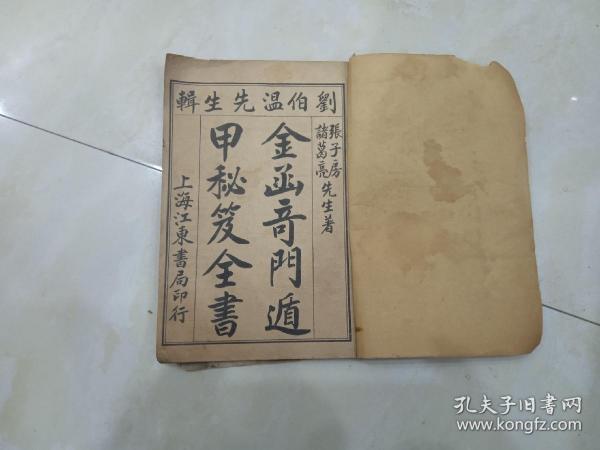 劉伯温先生輯
張子房
諸葛亮
先生著
金函奇門遁
甲秘笈全書
上海江東書局印行
孔夫子旧书网
www.kongfz.com